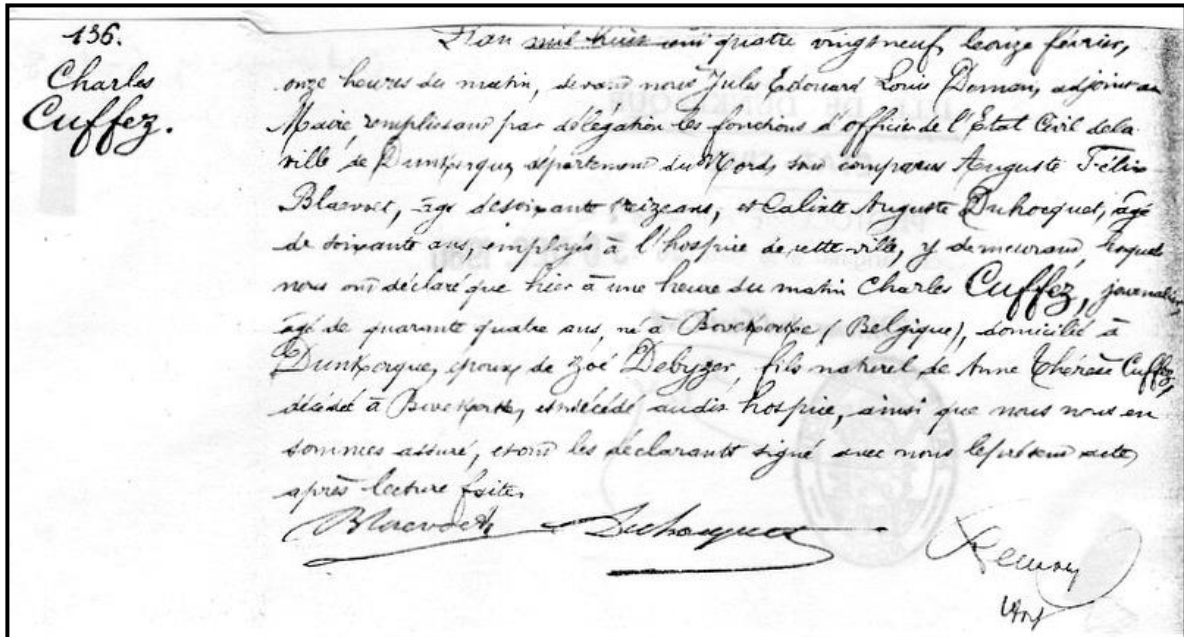 136.
Charles
Cuffez.
L'an mil huit cent quatre vingt neuf, le onze février,
onze heures du matin, devant nous Jules Edouard Louis adjoint au
Maire remplissant par délégation les fonctions d'officier de l'Etat Civil de la
ville de Dunkerque, département du Nord, sont comparus Auguste Félix
Blaevoet, âgé de soixante treize ans, et Calixte Auguste Duhocquet, âgé
de soixante ans, employés à l'hospice de cette ville, y demeurant, lesquels
nous ont déclaré que hier à une heure du matin Charles Cuffez, journalier,
âgé de quarante quatre ans, né à (Belgique), domicilié à
Dunkerque, époux de Zoé Debyzer, fils naturel de Anne Thérèse Cuffez,
décédée à est décédé audit hospice, ainsi que nous nous en
sommes assuré, et ont les déclarants signé avec nous le présent acte
après lecture faite.
Blaevoet Duhocquet